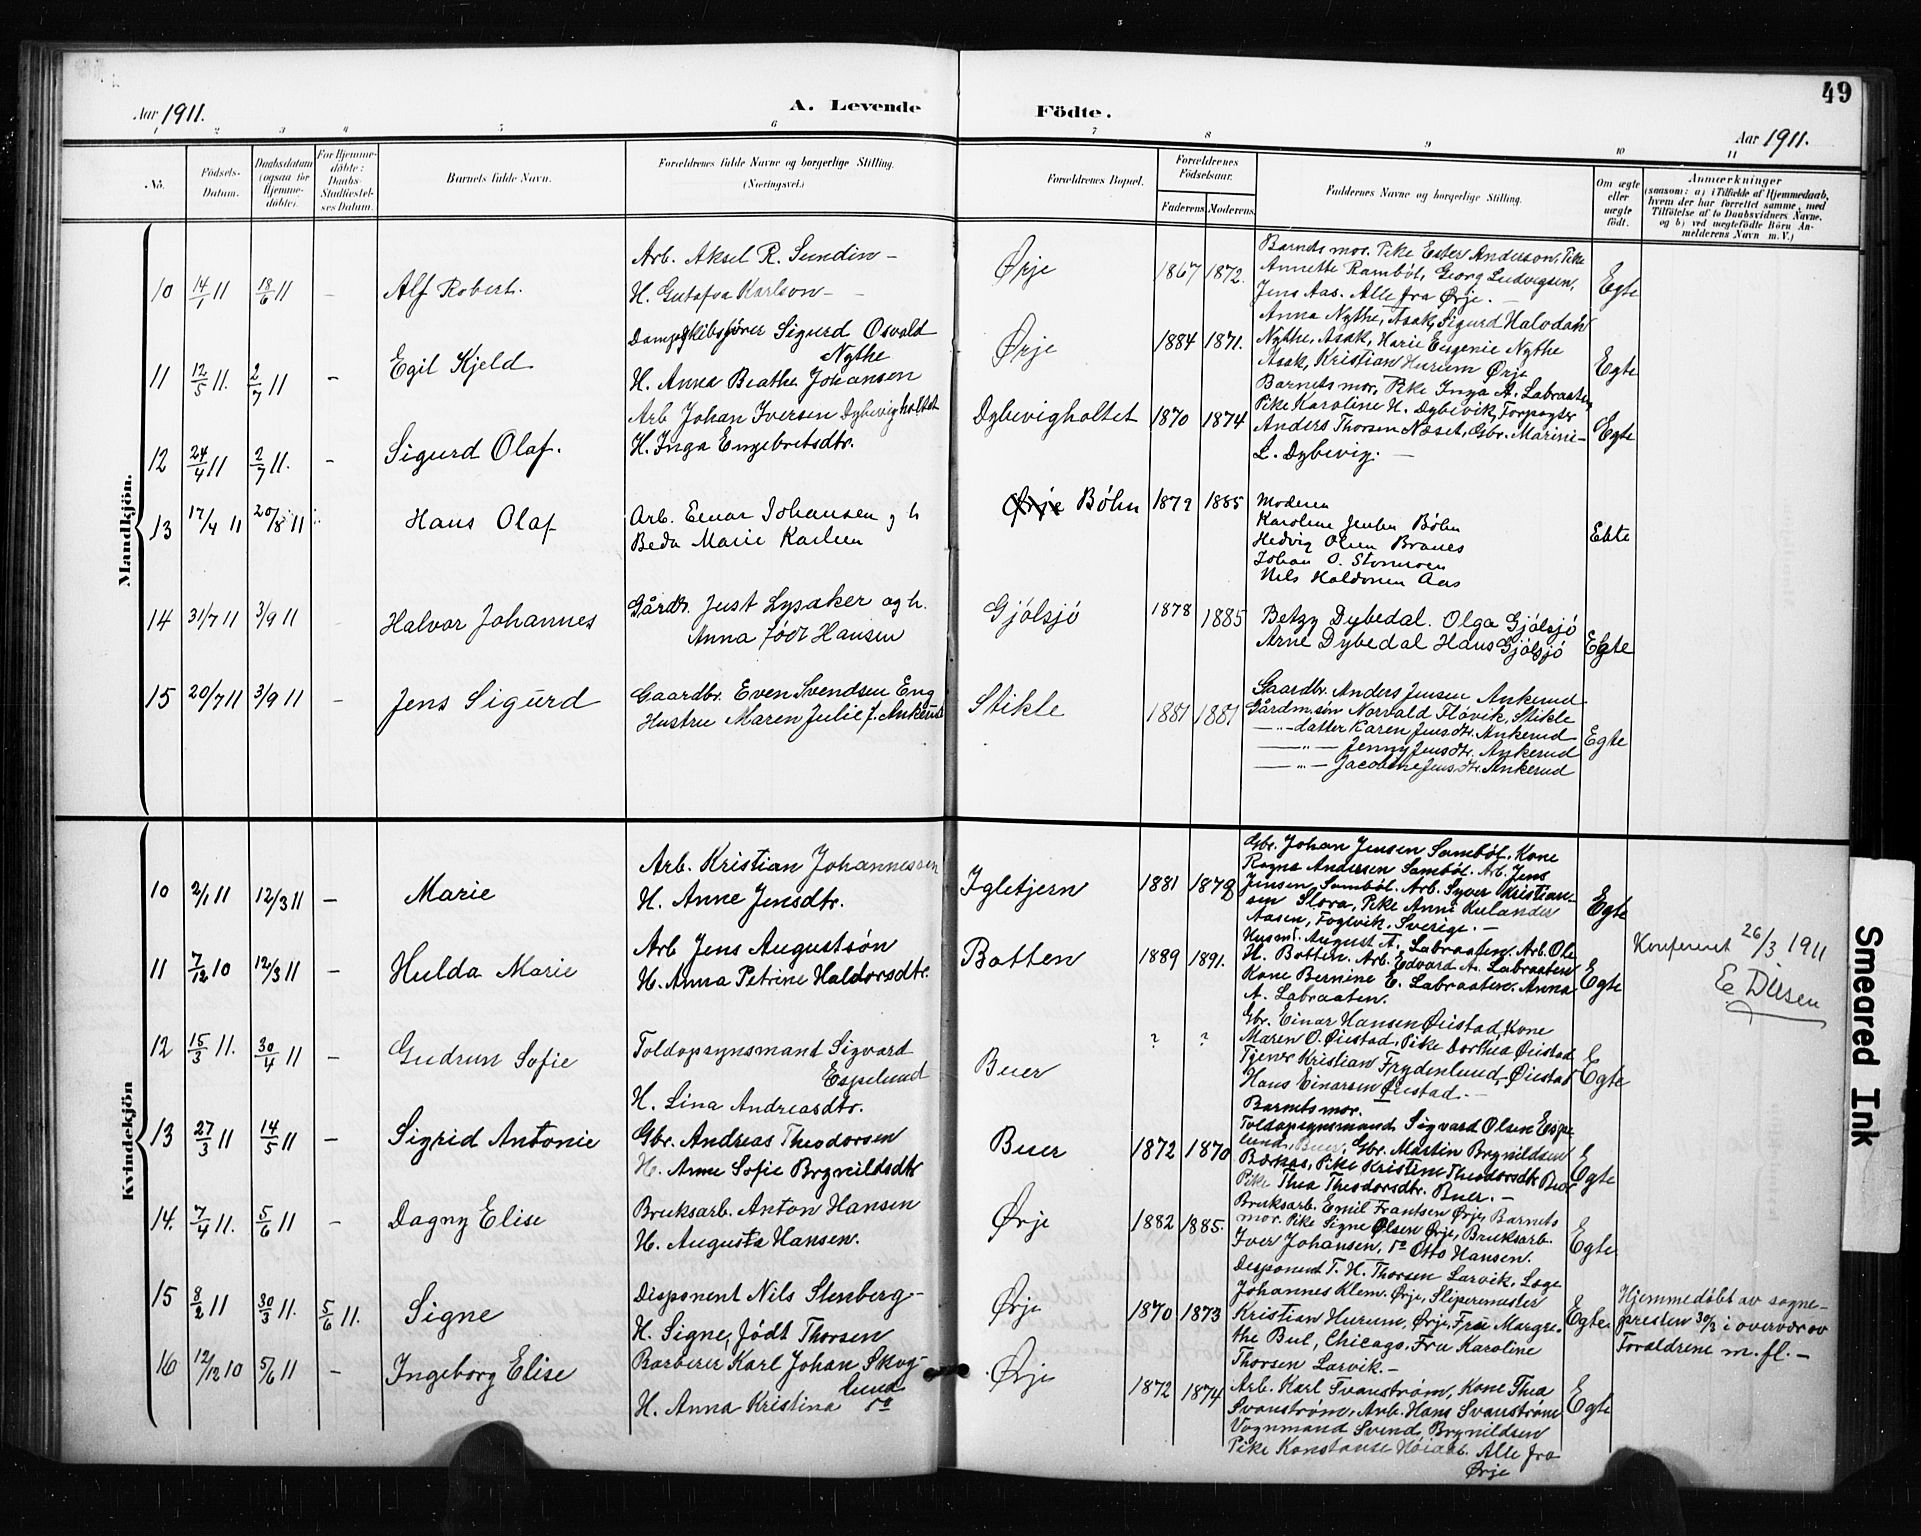 49
Aar 1911.
A. Levende
Födte.
Aar 1911.
1 2 3 4 5 6 7 8 9 10 11
No.
Födsels-Datum.
Daabsdatum (ogsaa for Hjemme-döbte).
For Hjemme-döbte: Daabs-Stadfæstel-ses Datum.
Barnets fulde Navn.
Forældrenes fulde Navne og borgerlige Stilling.
(Næringsvei.)
Forældrenes Bopæl.
Forældrenes Födselsaar.
Faderens Moderens
Faddernes Navne og borgerlige Stilling.
Om ægte eller uægte født.
Anmærkninger
(saasom: a) i Tilfælde af Hjemmedaab, hvem der har forrettet samme, med Tilföielse af to Daabsvidners Navne, og b) ved uægtefödte Börn Anmelderens Navn m. V.)
Mandkjön.
10 14/1 11 18/6 11 – Alf Robert.
Arb. Aksel R. Sundin –
H. Gustafva Karlson –
Ørje 1867 1872.
Barnets mor. Pike Ester Anderson, Pike
Annette Rambøl, Georg Ludvigsen,
Jens Aas. Alle fra Ørje. –
Egte
11 12/5 11. 2/7 11 – Egil Kjeld
Dampskibsfører Sigurd Osvald
Nythe
H. Anna Beathe Johansen
Ørje 1884 1871.
Anna Nythe, Asak, Sigurd Halvdan
Nythe, Asak, Marie Eugenie Nythe
Asak, Kristian Hurum Ørje
Egte
12 24/4 11 2/7 11. – Sigurd Olaf.
Arb Johan Iversen Dybevigholtet
H. Inga Engebretsdtr.
Dybevigholtet 1870 1874
Barnets mor, Pike Inga A. Labraaten
Pike Karoline H. Dybevik, Forpagter
Anders Thorsen Næset, Gbr. Marinie
L. Dybevig. –
Egte
13 17/4 11 20/8 11 Hans Olaf
Arb. Einar Johansen og h
Beda Marie Karlsen
Ørje Böhn 1879 1885
Moderen
Karoline Jensen Böhn
Hedvig Olsen Branes
Johan O. Stomoen
Nils Haldorsen Aas
Ekte
14 31/7 11 3/9 11 – Halvor Johannes
Gårdbr. Just Lysaker og h.
Anna född Hansen
Gjölsjö 1878 1885
Betzy Dybedal. Olga Gjölsjö
Arne Dybedal Hans Gjölsjö
Egte
15 20/7 11 3/9 11 – Jens Sigurd
Gaardbr. Even Svendsen Eng
Hustru Maren Julie f. Ankerud
Stikle 1881 1881
Gaardbr. Anders Jensen Ankerud
Gårdm.sön Norvald Flövik, Stikle
– " – datter Karen Jensdtr. Ankerud
– " – Jenny Jensdtr. Ankerud
– " – Jacobine Jensdtr. Ankerud
Egte
Kvindekjön
10 2/1 11 12/3 11 – Marie
Arb. Kristian Johannessen
H. Anne Jensdtr.
Igletjern 1881 1878
Gbr. Johan Jensen Sambøl. Kone
Ragna Andersen Sambøl. Arb. Jens
Jensen, Sambøl. Arb. Syver Kristian-
sen Slora, Pike Anni Kulander
Aasen, Foglvik, Sverige. –
Egte
11 7/12 10 12/3 11 – Hulda Marie
Arb Jens Augustsøn
H. Anna Petrine Haldorsdtr.
Botten 1889 1891.
Husmd. August A. Labraaten. Arb. Ole
H. Botten. Arb. Edvard A. Labraaten
Kone Bernine E. Labraaten. Anna
A. Labraaten.
Egte
Konfereret 26/3 1911
E Diesen
12 15/3 11. 30/4 11 – Gudrun Sofie
Toldopsynsmand Sigvard
Espelund
H. Lina Andreasdtr.
Buer ? ?
Gbr. Einar Hansen Øiestad, Kone
Maren O. Øiestad, Pike Dorthea Øiestad
Tjener Kristian Frydenlund, Øiestad
Hans Einarsen Øiestad. –
Egte
13 27/3 11 14/5 11 – Sigrid Antonie
Gbr. Andreas Theodorsen
H. Anne Sofie Brynildsdtr
Buer 1872 1870
Barnets mor.
Toldopsynsmand Sigvard Olsen Espe
lund, Buer, Gbr. Martin Brynildsen
Bærkas, Pike Kristine Theodorsdtr Buer
Pike Thea Theodorsdtr. Buer. –
Egte
14. 7/4 11. 5/6 11 – Dagny Elise
Bruksarb. Anton Hansen
H. Augusta Hansen.
Ørje 1882 1885.
Bruksarb. Emil Frantsen Ørje, Barnets
mor. Pike Signe Olsen Ørje, Bruksarb.
Iver Johansen, do Otto Hansen.
Egte
15 8/2 11 30/3 11. 5/6 11. Signe
Disponent Nils Stenberg –
H. Signe, født Thorsen
Ørje 1870 1873
Disponent T. H. Thorsen Larvik, Læge
Johannes Klem, Ørje, Slipermester
Kristian Hurum, Ørje, Fru Margre-
the Bul, Chicago, Fru Karoline
Thorsen Larvik. –
Egte
Hjemmedøbt av sogne-
presten 30/3 i overvær av
Forældrene m. fl. –
16 12/12 10 5/6 11 – Ingeborg Elise
Barberer Karl Johan Skog-
lund
H. Anna Kristina do
Ørje 1872 1874
Arb. Karl Svanstrøm, Kone Thea
Svanstrøm, Arb. Hans Svanstrøm
Vognmand Svend Brynildsen
Pike Konstanse Høidal. Alle fra
Ørje
Egte
Smeared Ink